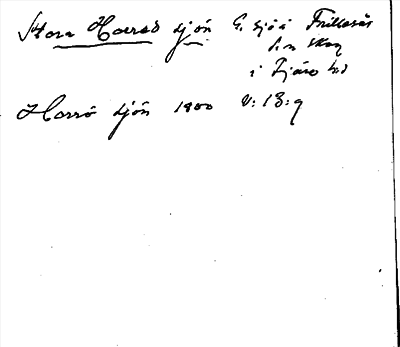 Stora Horredsjön G. sjö i Frillesås
s:n skog
i Fjäre hd
Horrö sjön 1800 V: 13: 9